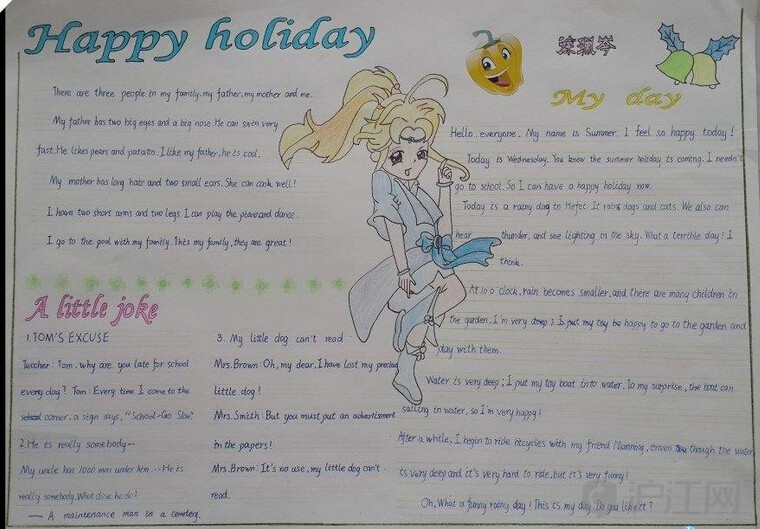 Happy holiday
There are three people in my family. my father, my mother and me.
My father has two big eyes and a big nose. He can swim very
fast. He likes pears and potatos. I like my father, he is cool.
My mother has long hair and two small ears. She can cook well!
I have two short arms and two legs I can play the piano and dance.
I go to the pool with my family. This my family, they are great!
A little joke
1. TOM'S EXCUSE
Teacher: Tom. why are you late for school
every day? Tom: Every time I come to the
school corner. a sign says, "School-Go Slow".
2. He is really somebody--
My uncle has 1000 men under him. -- He is
really somebody. What dose he do?
— A maintenance man in a cemetery.
3. My little dog can't read
Mrs. Brown: Oh, my dear, I have lost my precious
little dog!
Mrs. Smith: But you must put an advertisment
in the papers!
Mrs. Brown: It's no use, my little dog can't
read.
My day
Hello, everyone. My name is Summer. I feel so happy today!
Today is Wednesday. You know the summer holiday is coming. I needn't
go to school. So I can have a happy holiday now.
Today is a rainy day in Hefei. It rains dogs and cats. We also can
hear thunder, and see lighting in the sky. What a terrible day! I
think.
At 10 o'clock, rain becomes smaller, and there are many children in
the garden, I'm very I put my toy be happy to go to the garden and
play with them.
Water is very deep; I put my toy boat into water. To my surprise, the boat can
sailing in water, so I'm very happy!
After a while, I begin to ride bicycles with my friend though the water
is very deep and it's very hard to ride, but it's very funny!
Oh, What a funny rainy day! This is my day. Do you like it?
沪江网